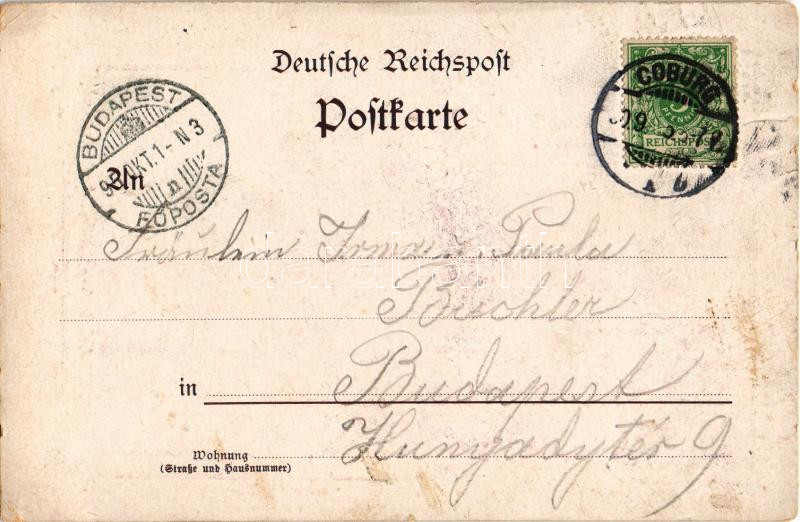 Deutsche Reichspost
Postkarte
COBURG
PFENNIG
REICHSPOST
BUDAPEST
OKT. 1 - N 3
FŐPOSTA
An
Fräulein Irma u. Paula
Büchler
in Budapest
Hunyadytér 9
Wohnung
(Straße und Hausnummer)
darabanth